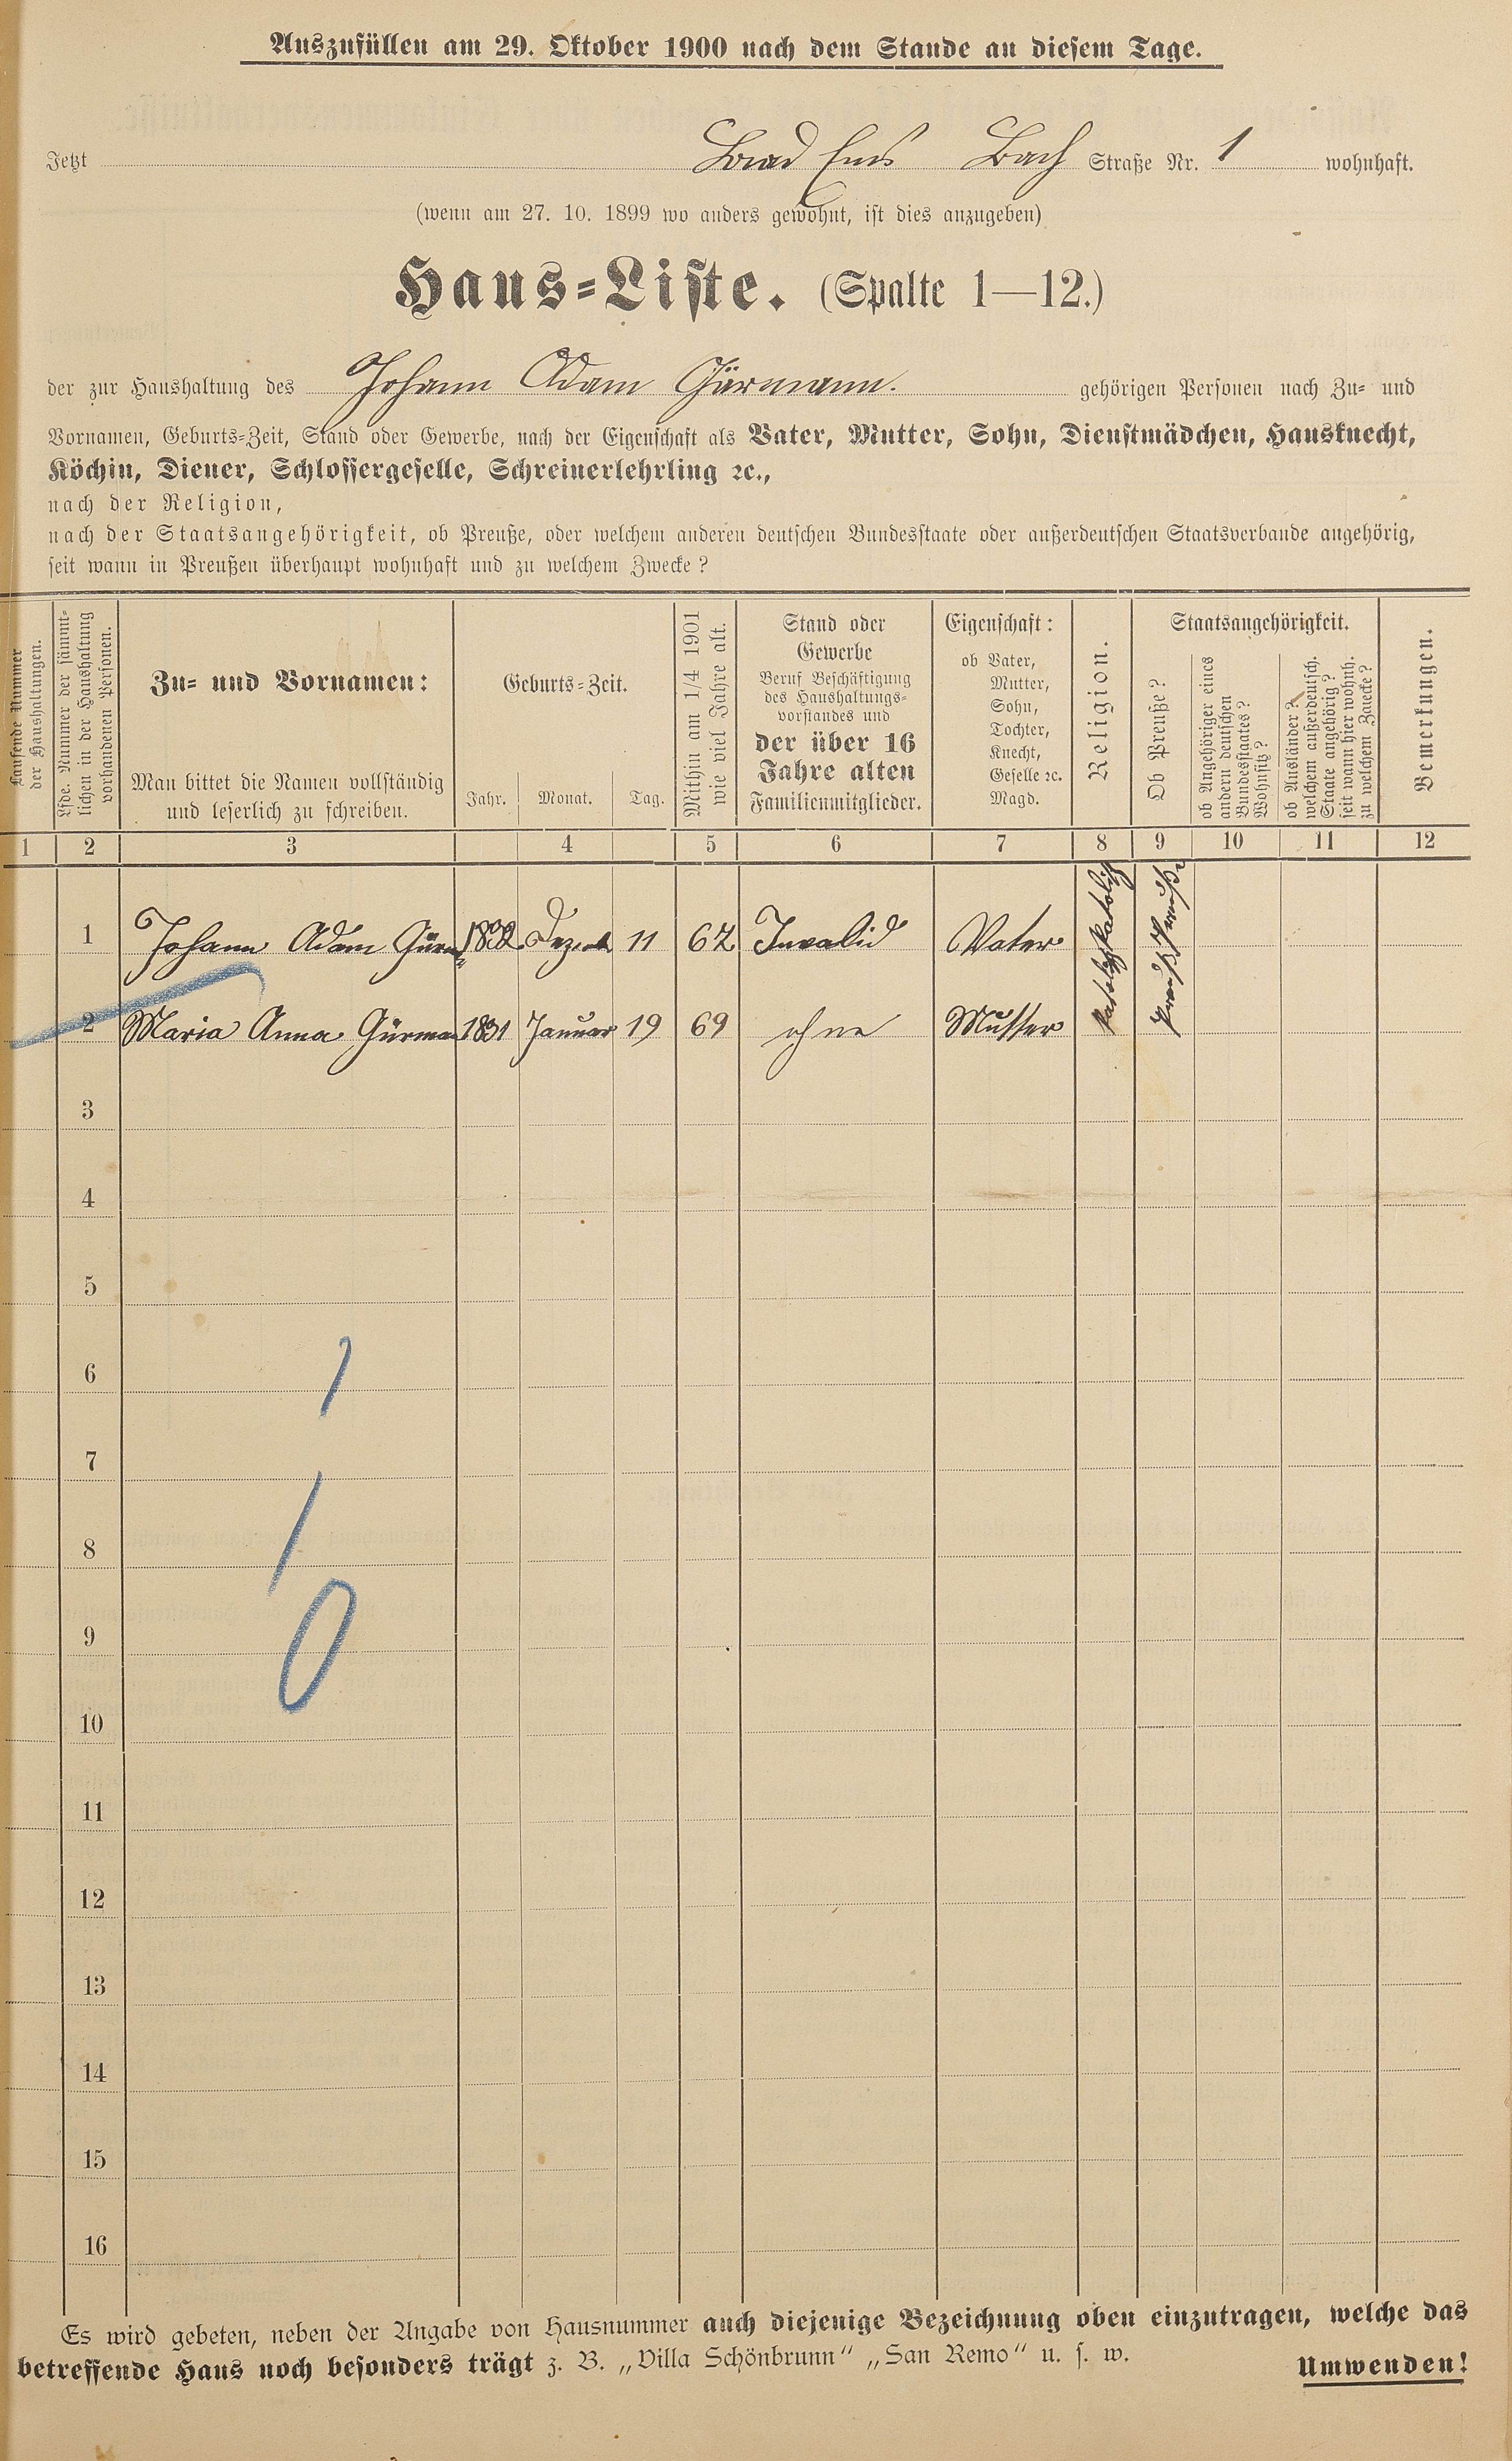 Auszufüllen am 29. Oktober 1900 nach dem Stande an diesem Tage.
Jetzt Baad Ems Bach Straße Nr. 1 wohnhaft.
(wenn am 27. 10. 1899 wo anders gewohnt, ist dies anzugeben)
Haus=Liste. (Spalte 1—12.)
der zur Haushaltung des Johann Adam Gürmann. gehörigen Personen nach Zu= und
Vornamen, Geburts=Zeit, Stand oder Gewerbe, nach der Eigenschaft als Vater, Mutter, Sohn, Dienstmädchen, Hausknecht,
Köchin, Diener, Schlossergeselle, Schreinerlehrling ꝛc.,
nach der Religion,
nach der Staatsangehörigkeit, ob Preuße, oder welchem anderen deutschen Bundesstaate oder außerdeutschen Staatsverbande angehörig,
seit wann in Preußen überhaupt wohnhaft und zu welchem Zwecke?
Laufende Nummer
der Haushaltungen.
Lfde. Nummer der sämmt-
lichen in der Haushaltung
vorhandenen Personen.
Zu= und Vornamen:
Man bittet die Namen vollständig
und leserlich zu schreiben.
Geburts=Zeit.
Jahr. Monat. Tag.
Mithin am 1/4 1901
wie viel Jahre alt.
Stand oder
Gewerbe
Beruf Beschäftigung
des Haushaltungs-
vorstandes und
der über 16
Jahre alten
Familienmitglieder.
Eigenschaft:
ob Vater,
Mutter,
Sohn,
Tochter,
Knecht,
Geselle ꝛc.
Magd.
Religion.
Staatsangehörigkeit.
Ob Preuße?
ob Angehöriger eines
andern deutschen
Bundesstaates?
Wohnsitz?
ob Ausländer?
welchem außerdeutsch.
Staate angehörig?
seit wann hier wohnh.
zu welchem Zwecke?
Bemerkungen.
1 2 3 4 5 6 7 8 9 10 11 12
1 Johann Adam Gürm 1832 Dezemb 11 67 Invalid Vater Katolisch Preuße
2 Maria Anna Gürman 1831 Januar 19 69 ohne Mutter Katolisch Preuße
3
4
5
6
7
8
9
10
11
12
13
14
15
16
1
/
0
Es wird gebeten, neben der Angabe von Hausnummer auch diejenige Bezeichnung oben einzutragen, welche das
betreffende Haus noch besonders trägt z. B. „Villa Schönbrunn" „San Remo" u. s. w. Umwenden!